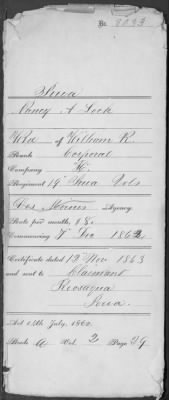 No.
Iowa
Nancy A Lock
Wid of William R.
Rank Corporal
Company H.
Regiment 19" Iowa Vols
Des Moines Agency
Rate per month, $8.
Commencing 7" Dec 1862
Certificate dated 12 Nov 1863
and sent to Claimant
Keosauqua
Iowa.
Act 14th July, 1862.
Book A Vol. 2 Page 29